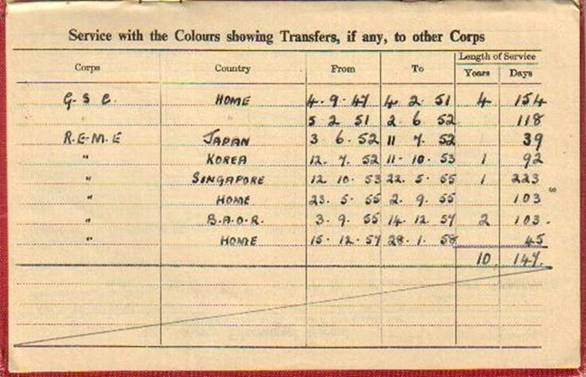 Service with the Colours showing Transfers, if any, to other Corps
Corps Country From To Length of Service
Years Days
G.S.C. HOME 4. 9. 47 4 2. 51 4 154
5 2 51 2 6 52 118
R.E.M.E JAPAN 3 . 6. 52 11 7. 52 39
" KOREA 12. 7. 52 11. 10. 53 1 92
" SINGAPORE 12 10. 53 22. 5. 55 1 223
" HOME 23. 5. 55 2. 9. 55 103
" B.A.O.R. 3. 9. 55 14. 12 57 2 103.
" HOME 15. 12. 57 28. 1. 58 45
10 147.